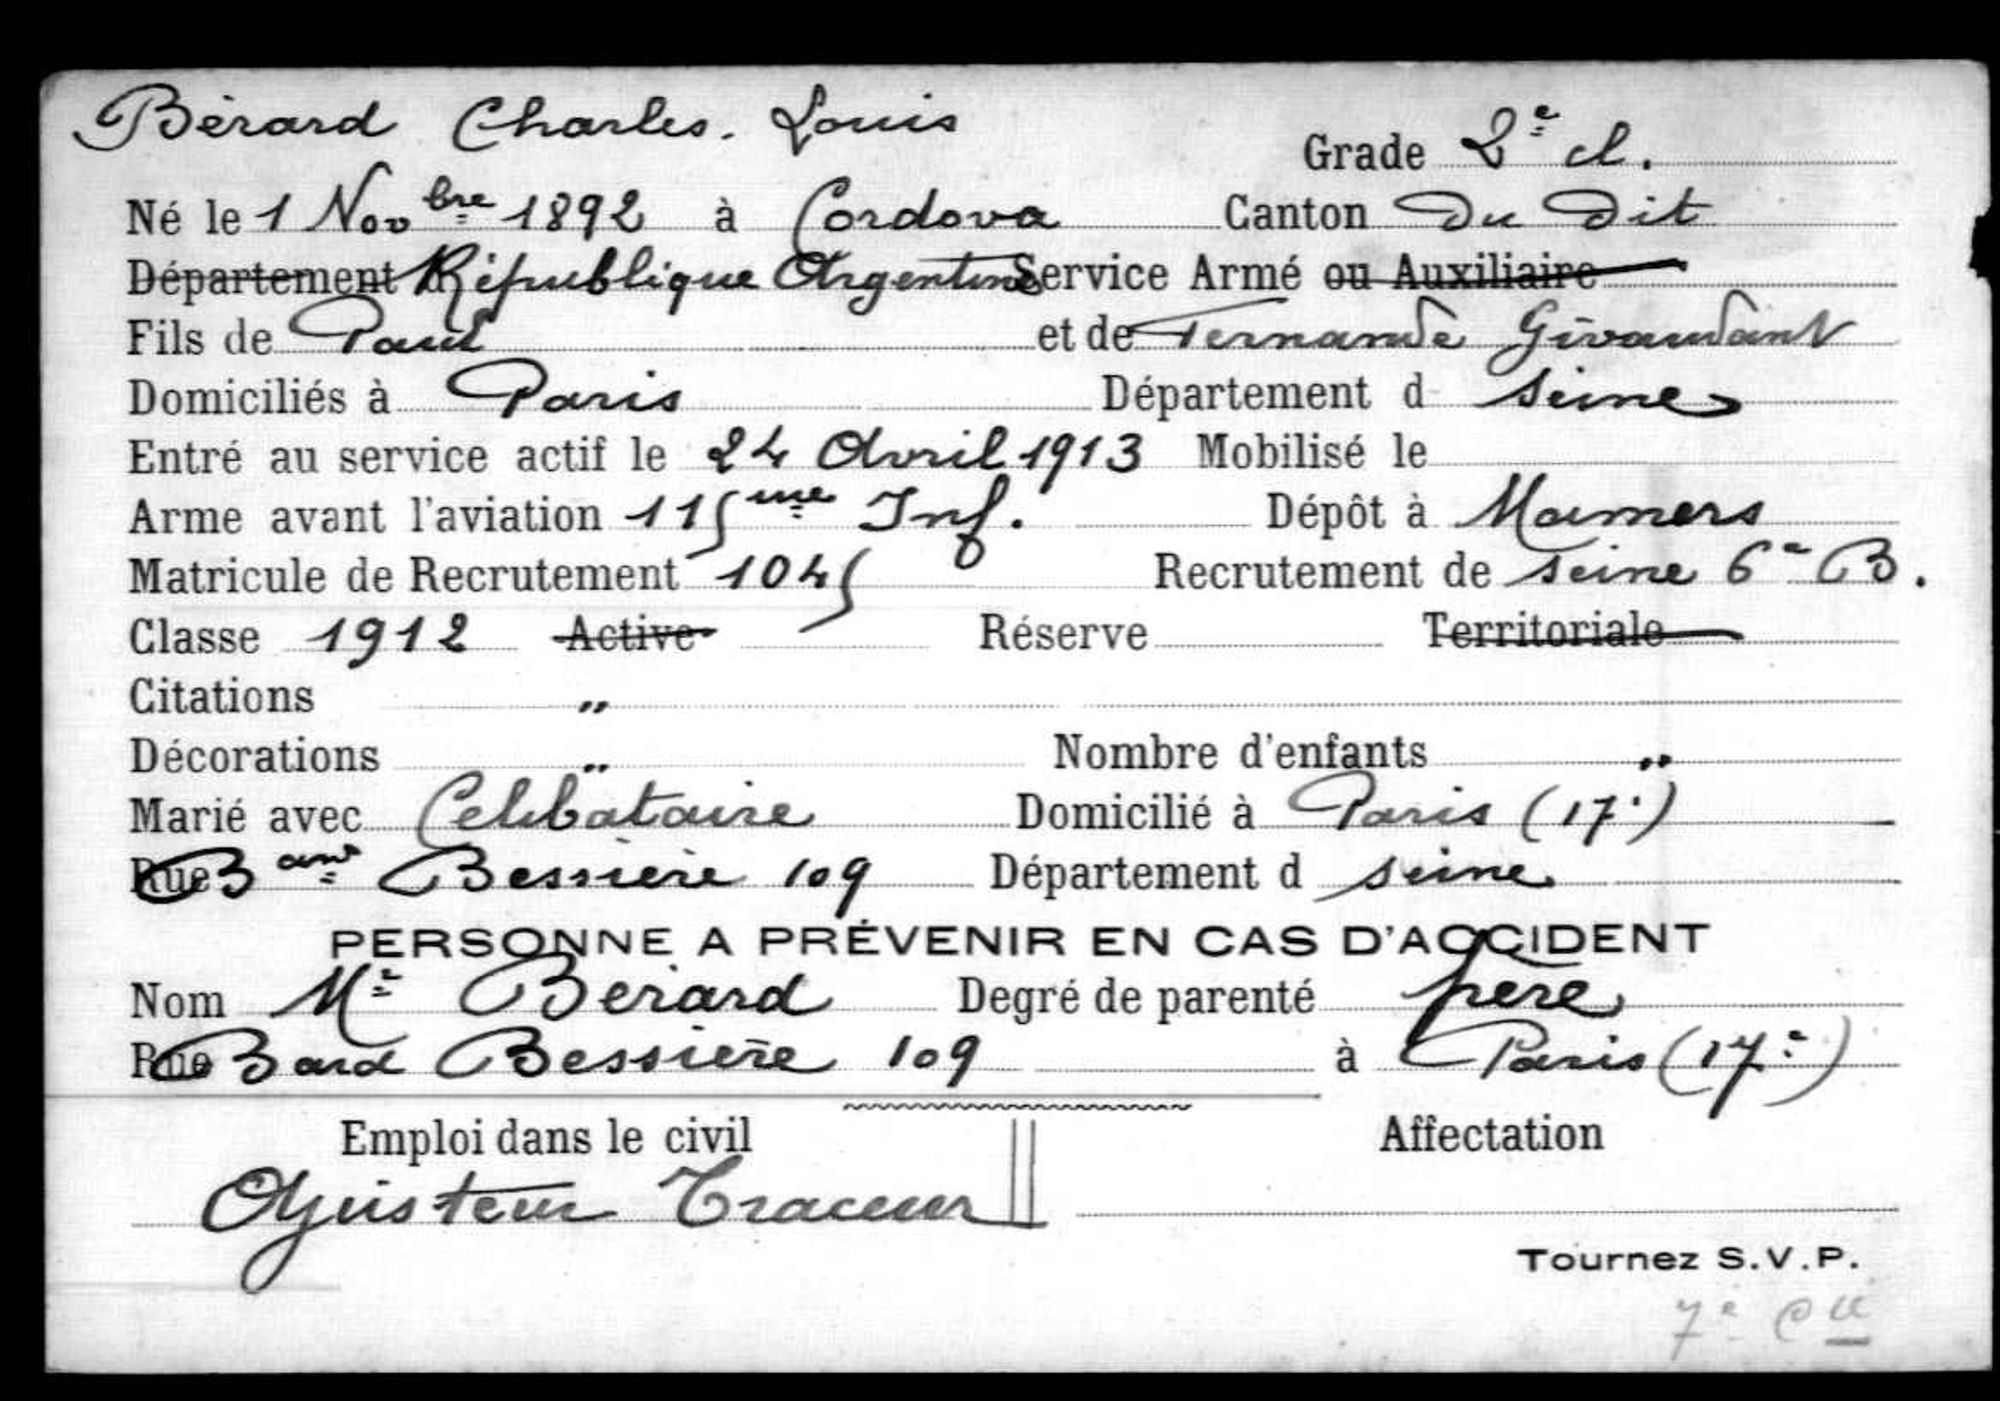 Bérard Charles. Louis
Grade 2e cl.
Né le 1 Novbre 1892 à Cordova Canton Du Dit
Département République Argentine Service Armé ou Auxiliaire
Fils de Paul et de Fernande Givaudant
Domiciliés à Paris Département d Seine
Entré au service actif le 24 Avril 1913 Mobilisé le
Arme avant l'aviation 115me Inf. Dépôt à Mamers
Matricule de Recrutement 1045 Recrutement de Seine 6e B.
Classe 1912 Active Réserve Territoriale
Citations "
Décorations " Nombre d'enfants "
Marié avec Celibataire Domicilié à Paris (17e)
Rue Bard Bessière 109 Département d Seine
PERSONNE A PRÉVENIR EN CAS D'ACCIDENT
Nom Mr Berard Degré de parenté père
Rue Bard Bessière 109 à Paris (17e)
Emploi dans le civil Affectation
Ajusteur Traceur
Tournez S.V.P.
7e Cie